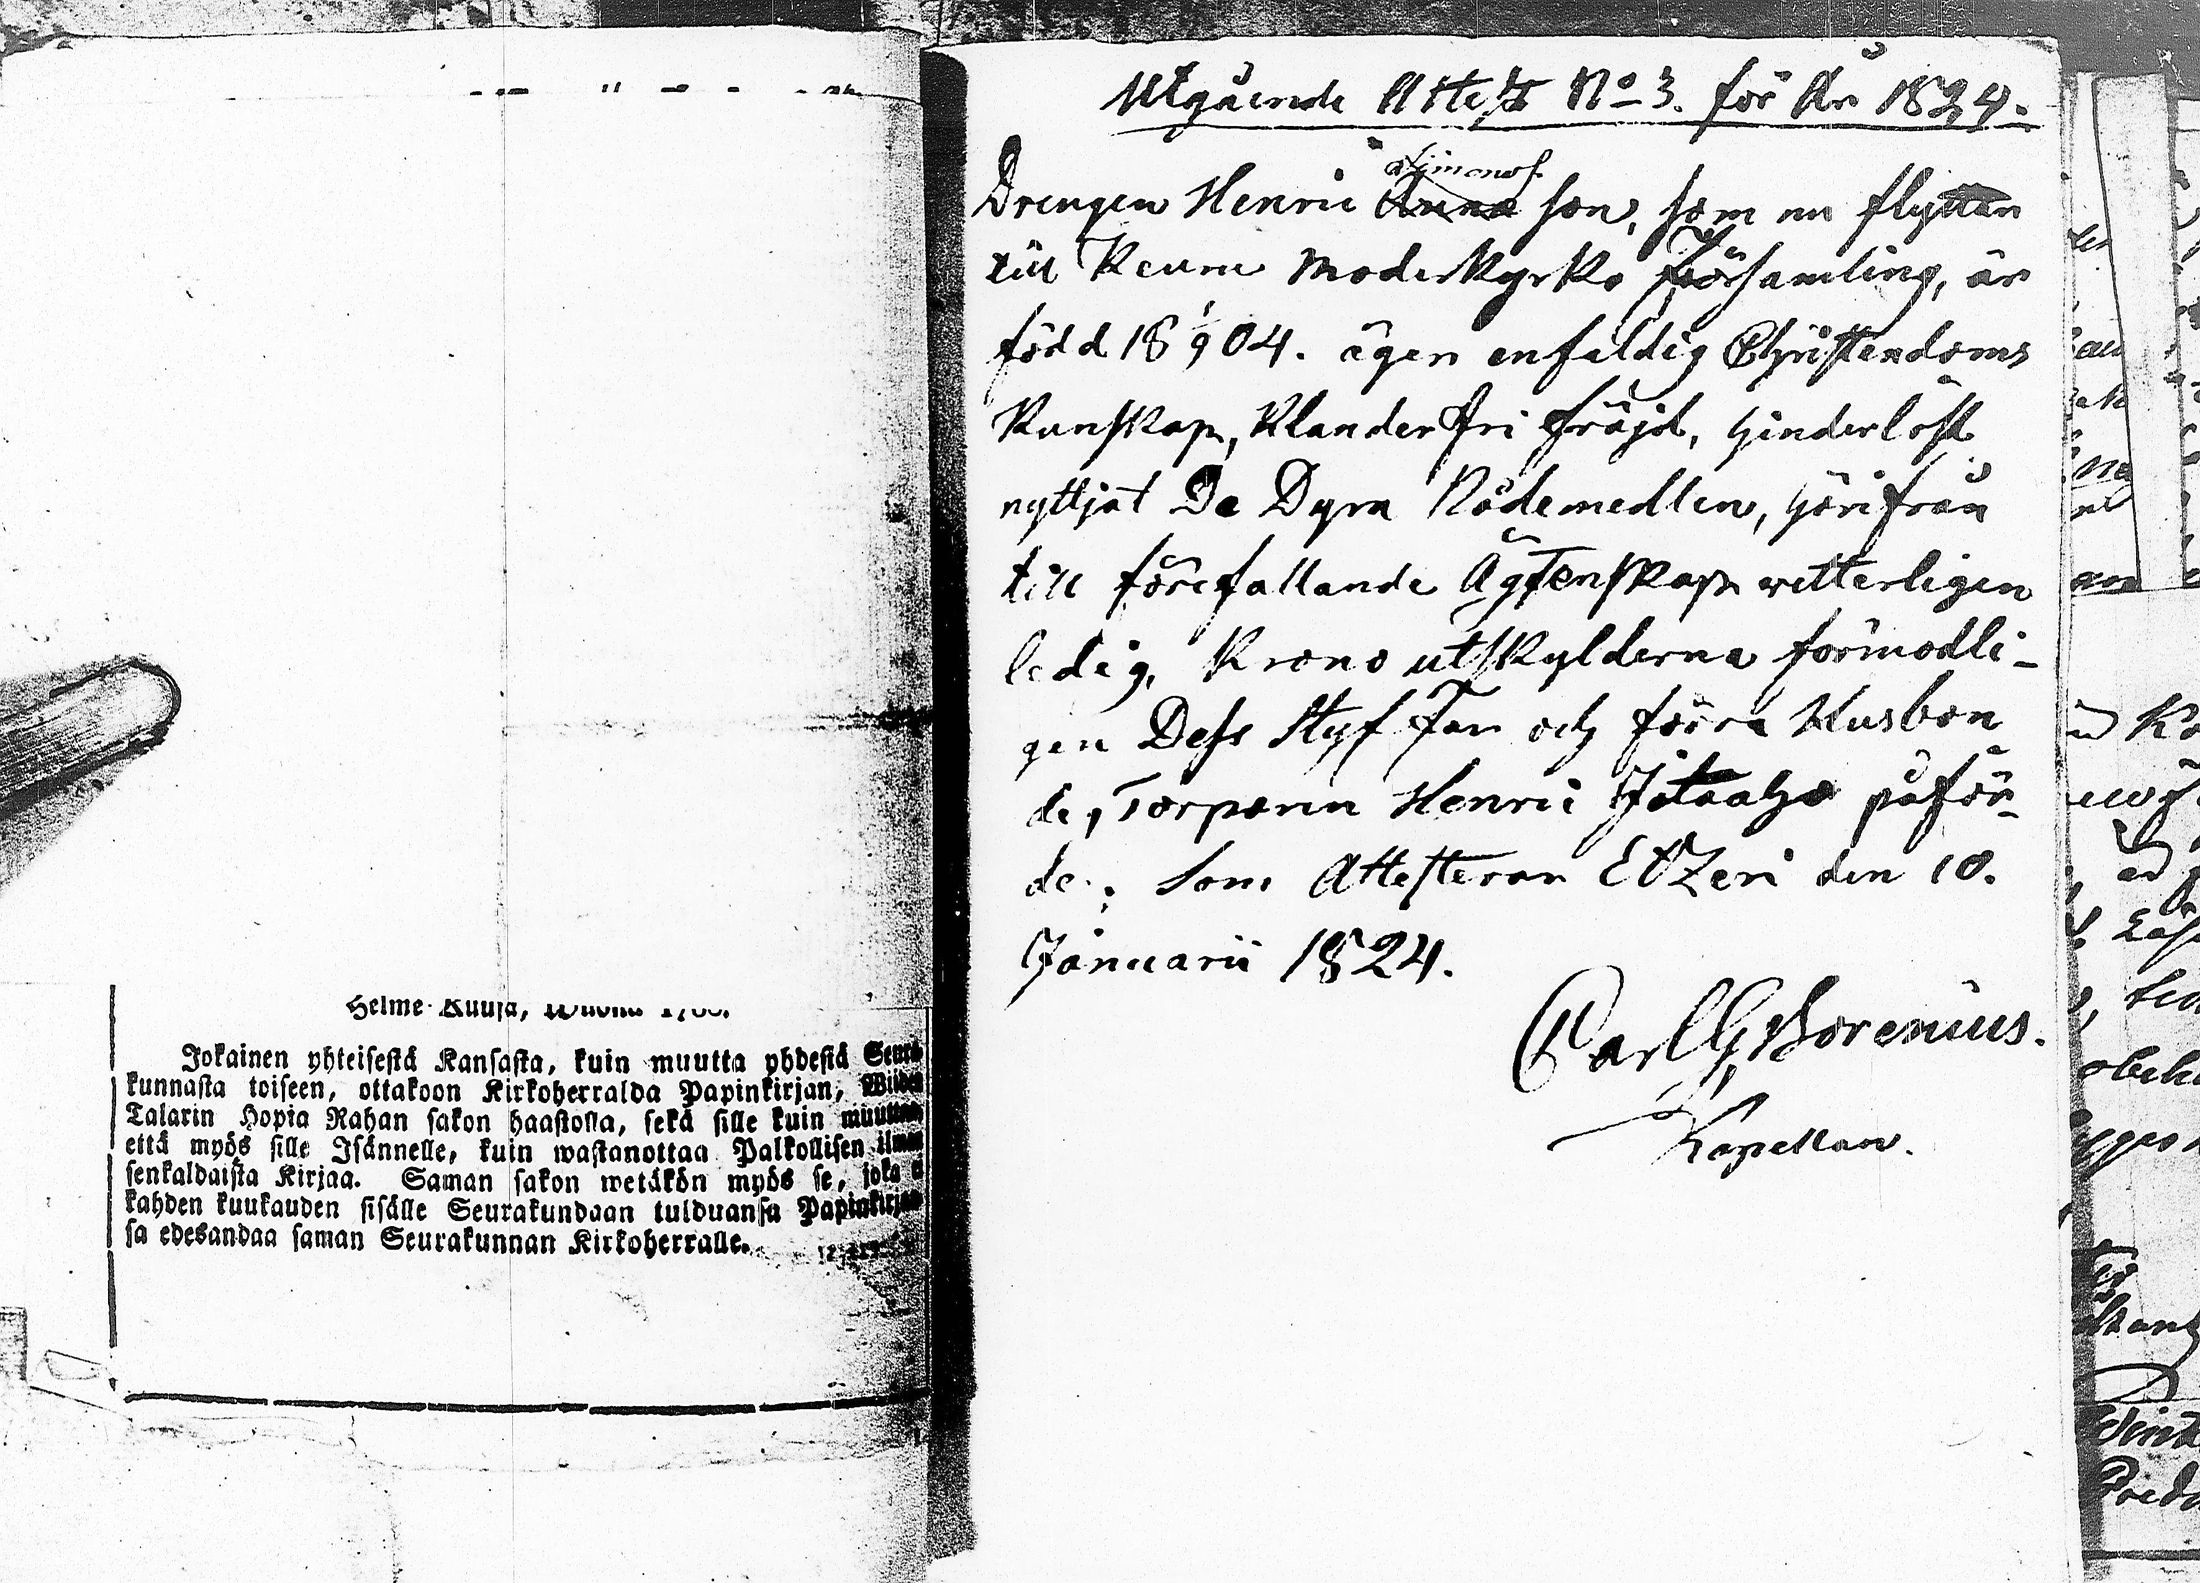 Helme-Kuusa,
Jokainen yhteisestä Kansasta, kuin muutta yhdestä Seura-
kunnasta toiseen, ottakoon Kirkoherralda Papinkirjan,
Talarin Hopia Rahan sakon haastolla, sekä sille kuin muuttaa
että myös sille Isännelle, kuin wastanottaa Palkollisen ilman
senkaldaista Kirjaa. Saman sakon wetäkön myös se, joka ei
kahden kuukauden sisälle Seurakundaan tulduansa Papinkirjan
sa edesandaa saman Seurakunnan Kirkoherralle.
Utgående Attest No 3. för År 1824.
Simons
Drengen Henric Anna son, som nu flyttar
till Keuru Moderkyrko Församling, är
född 18 1/9 04. äger enfaldig Christendoms
Kunskap, Klanderfri fräjd, hinderlöst
nyttjat De Dyra Nådemedlen, härifrån
till förefallande Ägtenskap vetterligen
ledig, Krono utskylderna förmodli-
gen Dess Styf Far och förra Husbon
de, Torparen Henric påför-
de; Som Attesterar Etzeri den 10.
Januarii 1824.
Carl G Borenius.
Kapellan.